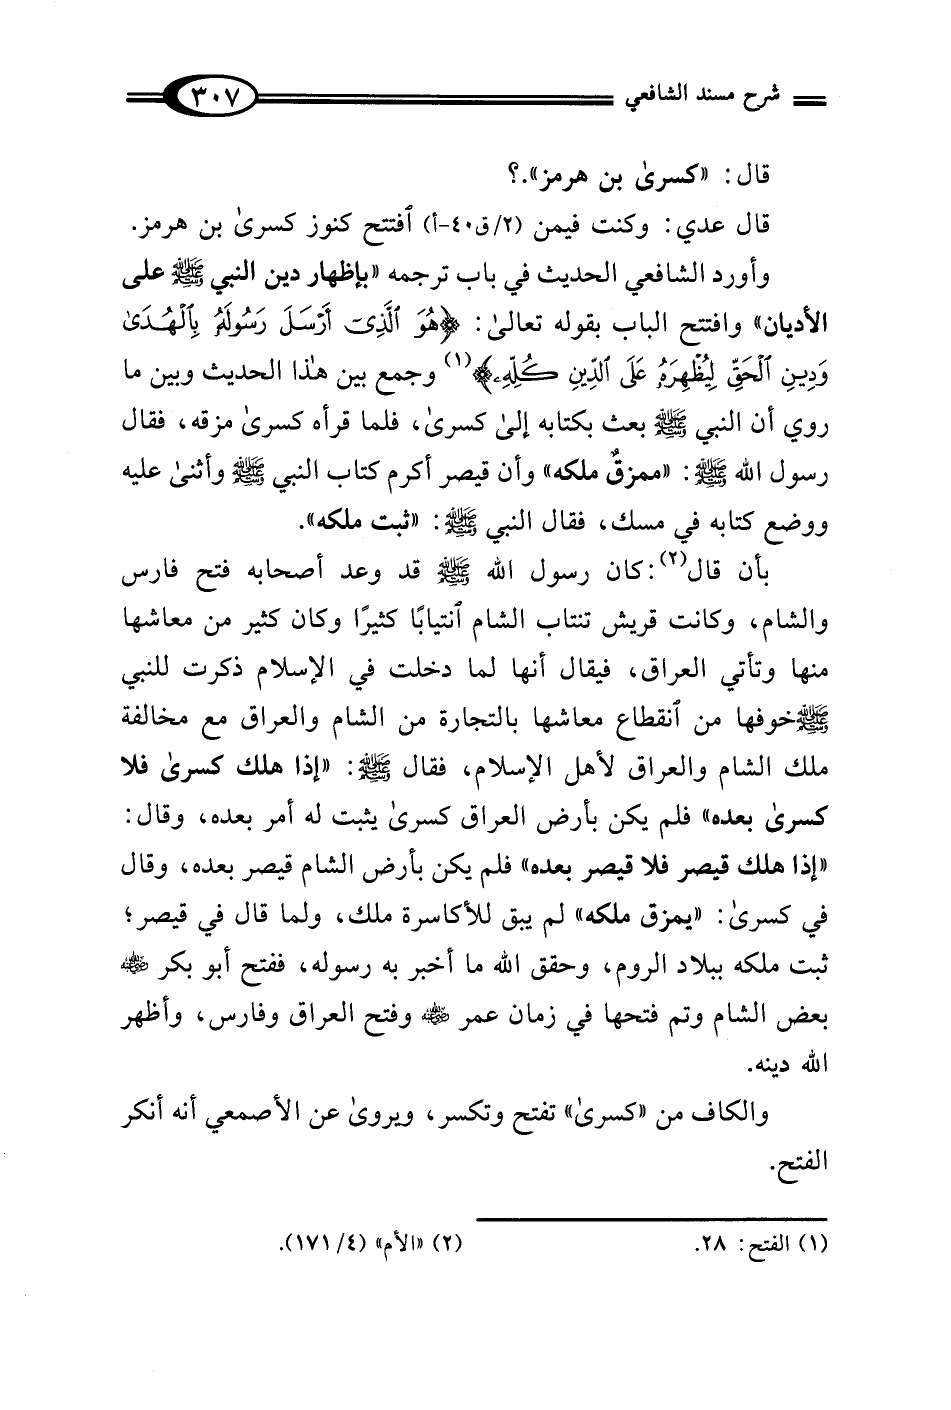 شرح مسند الشافعي ٣٠٧
قال: «كسرىٰ بن هرمز».؟
قال عدي: وكنت فيمن (٢/ق٤٠-أ) ٱفتتح كنوز كسرىٰ بن هرمز.
وأورد الشافعي الحديث في باب ترجمه «بإظهار دين النبي ﷺ على
الأديان» وافتتح الباب بقوله تعالىٰ: ﴿هُوَ ٱلَّذِىٓ أَرْسَلَ رَسُولَهُۥ بِٱلْهُدَىٰ
وَدِينِ ٱلْحَقِّ لِيُظْهِرَهُۥ عَلَى ٱلدِّينِ كُلِّهِۦ﴾(١) وجمع بين هٰذا الحديث وبين ما
روي أن النبي ﷺ بعث بكتابه إلىٰ كسرىٰ، فلما قرأه كسرىٰ مزقه، فقال
رسول الله ﷺ: «ممزقٌ ملكه» وأن قيصر أكرم كتاب النبي ﷺ وأثنىٰ عليه
ووضع كتابه في مسك، فقال النبي ﷺ: «ثبت ملكه».
بأن قال(٢): كان رسول الله ﷺ قد وعد أصحابه فتح فارس
والشام، وكانت قريش تنتاب الشام ٱنتيابًا كثيرًا وكان كثير من معاشها
منها وتأتي العراق، فيقال أنها لما دخلت في الإسلام ذكرت للنبي
ﷺ خوفها من ٱنقطاع معاشها بالتجارة من الشام والعراق مع مخالفة
ملك الشام والعراق لأهل الإسلام، فقال ﷺ: «إذا هلك كسرىٰ فلا
كسرىٰ بعده» فلم يكن بأرض العراق كسرىٰ يثبت له أمر بعده، وقال:
«إذا هلك قيصر فلا قيصر بعده» فلم يكن بأرض الشام قيصر بعده، وقال
في كسرىٰ: «يمزق ملكه» لم يبق للأكاسرة ملك، ولما قال في قيصر؛
ثبت ملكه ببلاد الروم، وحقق الله ما أخبر به رسوله، ففتح أبو بكر رضي الله عنه
بعض الشام وتم فتحها في زمان عمر رضي الله عنه وفتح العراق وفارس، وأظهر
الله دينه.
والكاف من «كسرىٰ» تفتح وتكسر، ويروىٰ عن الأصمعي أنه أنكر
الفتح.
(١) الفتح: ٢٨. (٢) «الأم» (٤/ ١٧١).